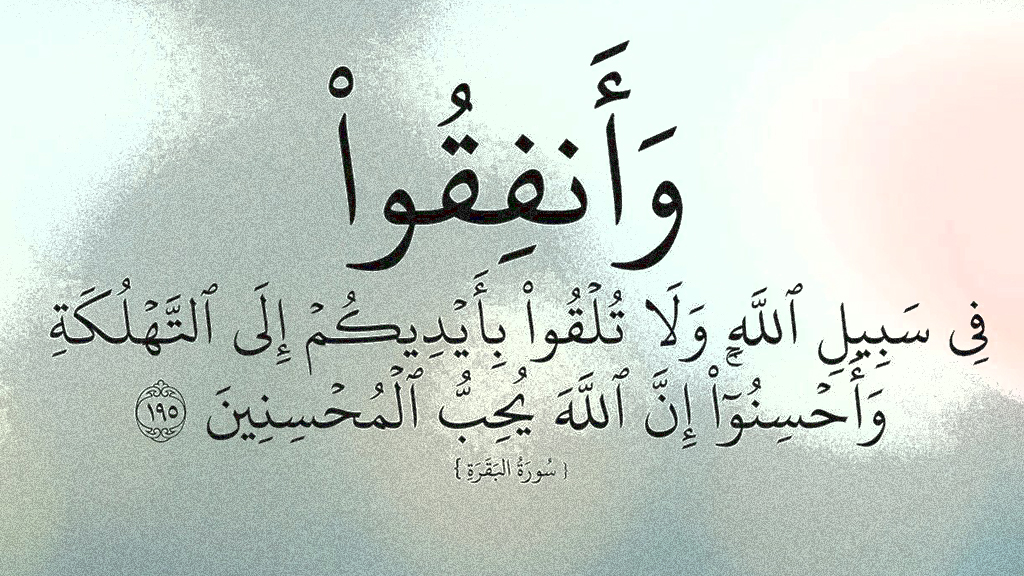 وَأَنفِقُوا۟
فِى سَبِيلِ ٱللَّهِ وَلَا تُلْقُوا۟ بِأَيْدِيكُمْ إِلَى ٱلتَّهْلُكَةِ
وَأَحْسِنُوٓا۟ ۛ إِنَّ ٱللَّهَ يُحِبُّ ٱلْمُحْسِنِينَ ١٩٥
{ سُورَةُ البَقَرَةِ }